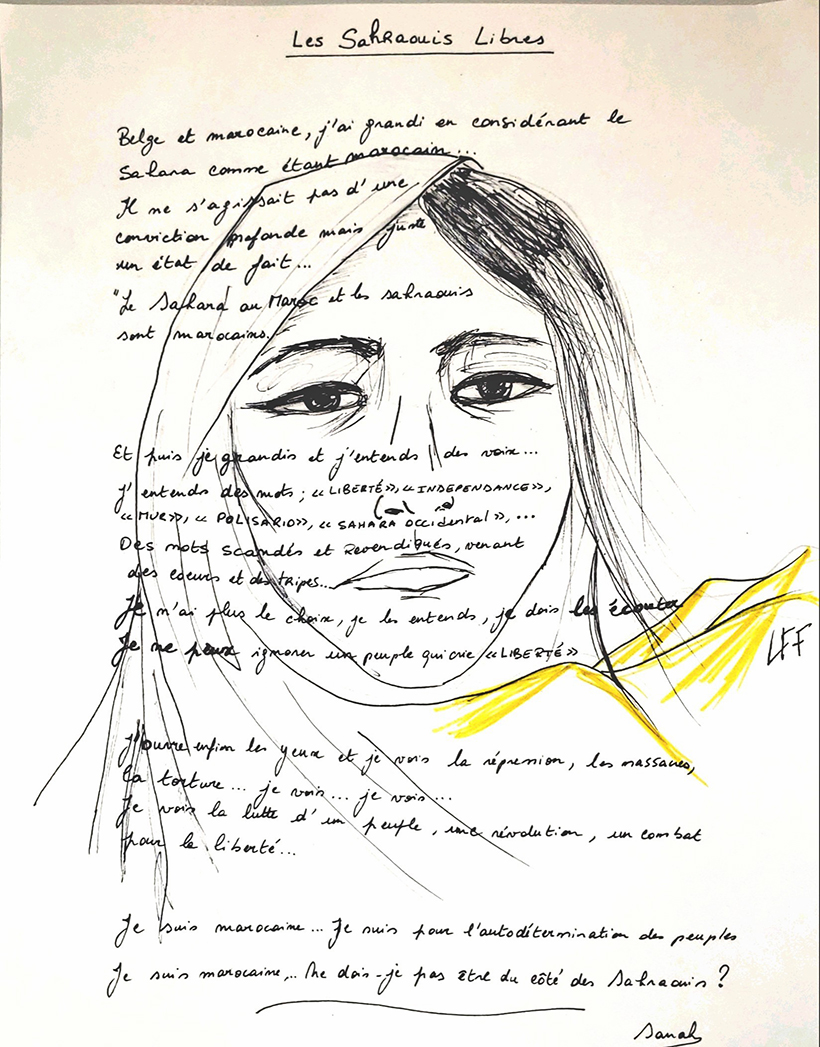 Les Sahraouis Libres
Belge et marocaine, j'ai grandi en considérant le
Sahara comme étant marocain...
Il ne s'agissait pas d'une
conviction profonde mais juste
un état de fait...
"Le Sahara au Maroc et les sahraouis
sont marocains.
Et puis je grandis et j'entends des voix...
j'entends des mots ; «LIBERTÉ», «INDEPENDANCE»,
«MUR», « POLISARIO», « SAHARA OCCIDENTAL», ...
Des mots scandés et Revendiqués, venant
des coeurs et des tripes...
Je n'ai plus le choix, je les entends, je dois les écouter
Je ne peux ignorer un peuple qui crie «LIBERTÉ»
LFF
J'ouvre enfin les yeux et je vois la répression, les massacres,
la torture... je vois... je vois...
Je vois la lutte d'un peuple, une révolution, un combat
pour la liberté...
Je suis marocaine... Je suis pour l'autodétermination des peuples
Je suis marocaine... Ne dois-je pas être du côté des Sahraouis ?
Sanah